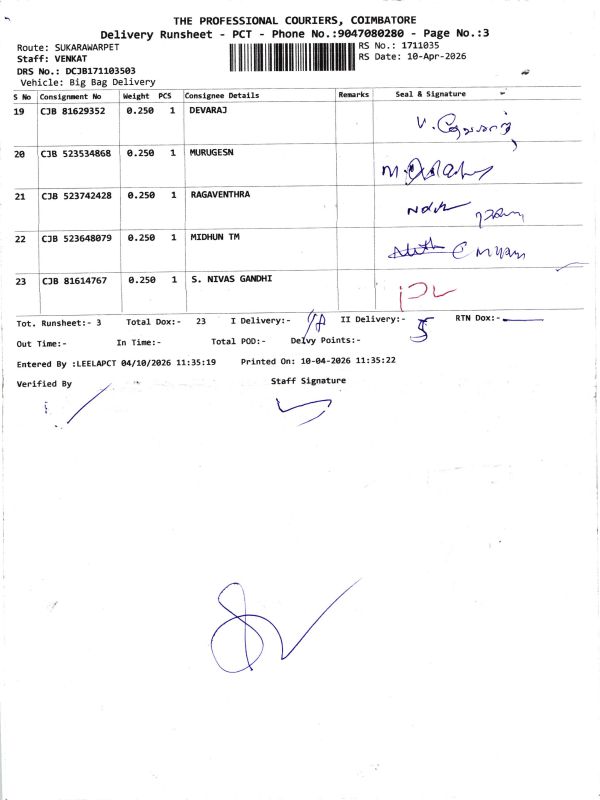 THE PROFESSIONAL COURIERS, COIMBATORE
Delivery Runsheet - PCT - Phone No.:9047080280 - Page No.:3
Route: SUKARAWARPET
RS No.: 1711035
Staff: VENKAT
RS Date: 10-Apr-2026
DRS No.: DCJB171103503
Vehicle: Big Bag Delivery
S No Consignment No Weight PCS Consignee Details Remarks Seal & Signature
19 CJB 81629352 0.250 1 DEVARAJ
20 CJB 523534868 0.250 1 MURUGESN
21 CJB 523742428 0.250 1 RAGAVENTHRA
22 CJB 523648079 0.250 1 MIDHUN TM
23 CJB 81614767 0.250 1 S. NIVAS GANDHI
Tot. Runsheet:- 3 Total Dox:- 23 I Delivery:- 18 II Delivery:- 5 RTN Dox:-
Out Time:- In Time:- Total POD:- Delvy Points:-
Entered By :LEELAPCT 04/10/2026 11:35:19 Printed On: 10-04-2026 11:35:22
Verified By Staff Signature